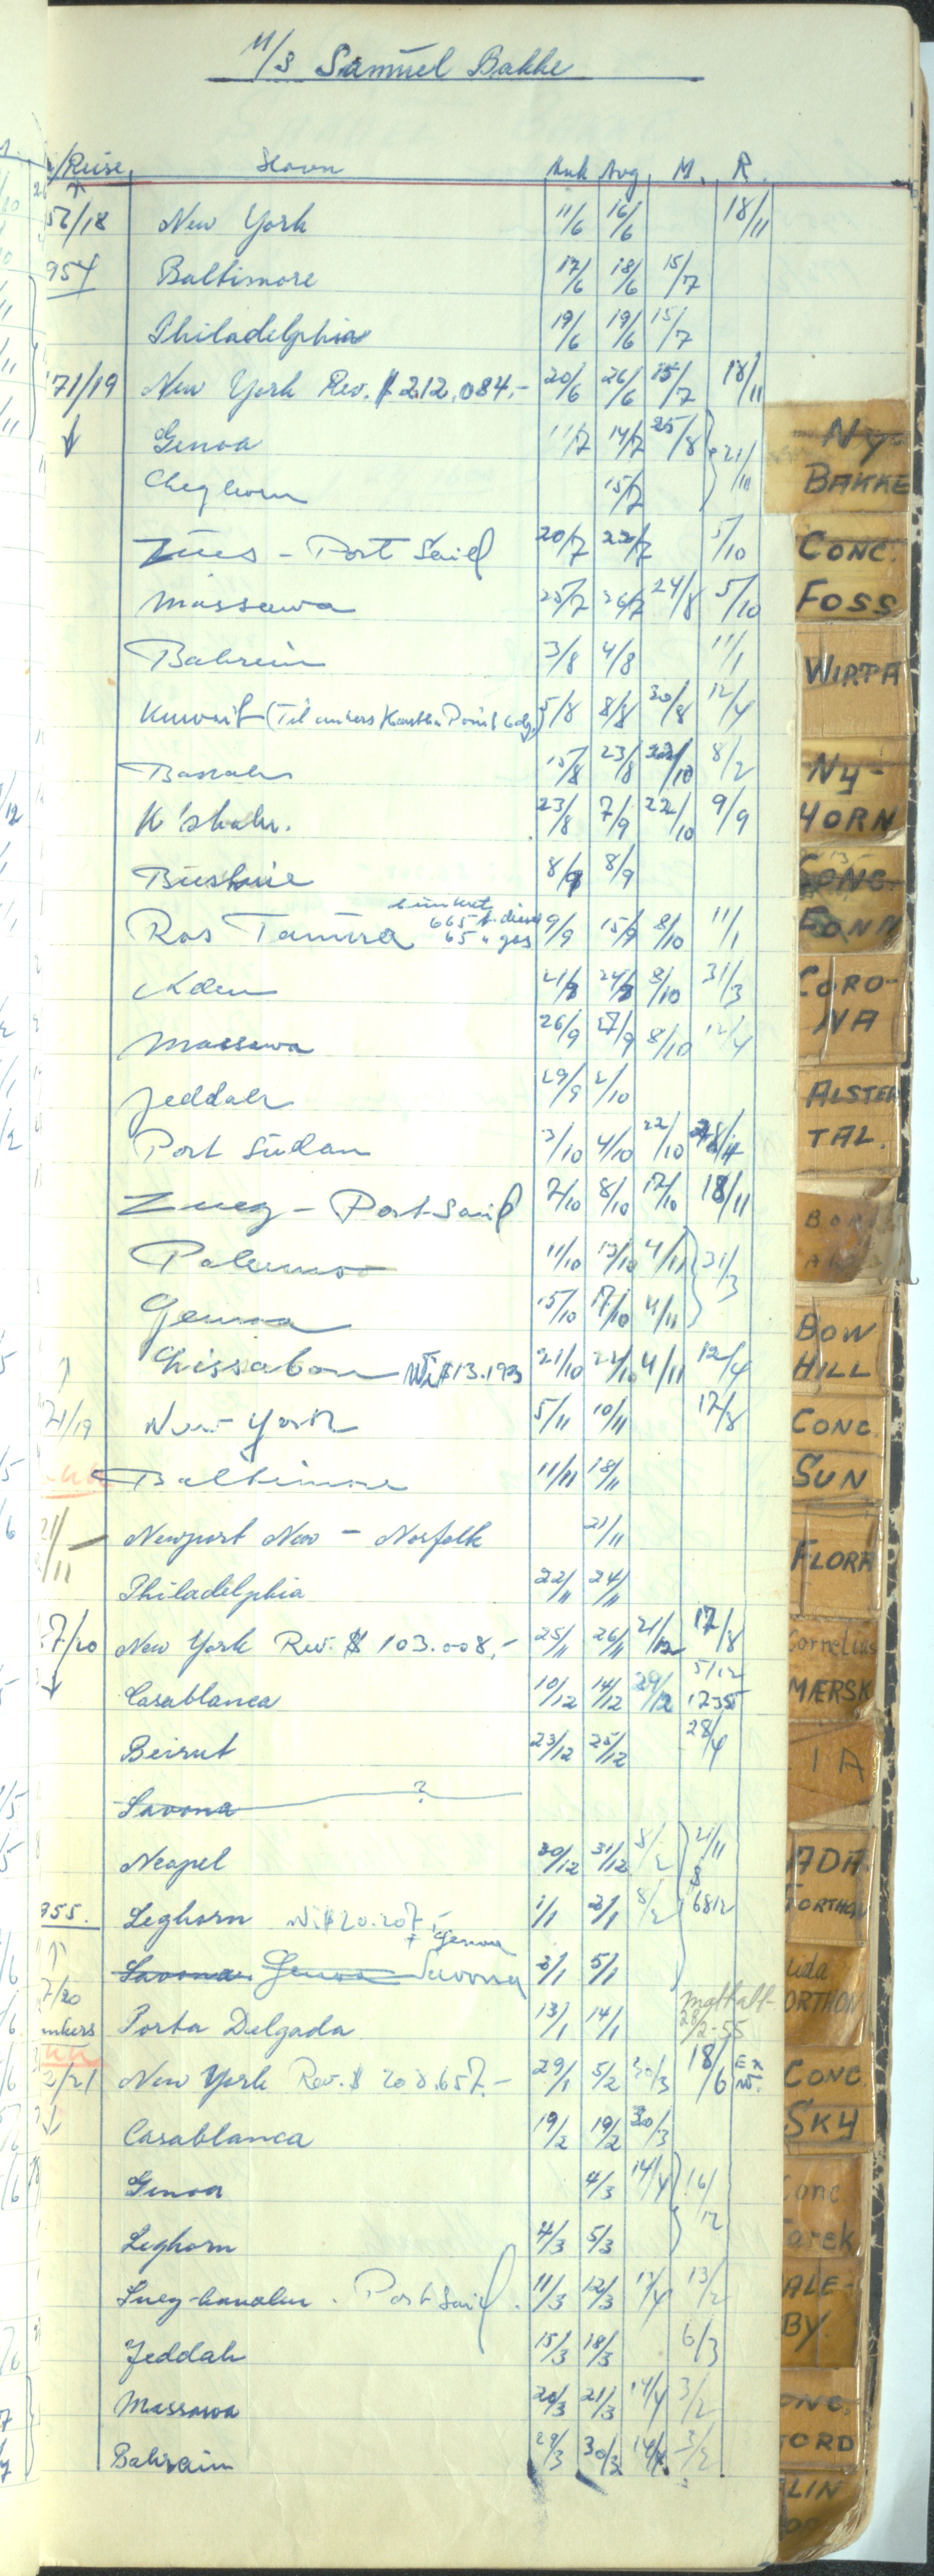 M/S Samuel Bakke
/Reise Havn Ank Avg M. R.
56/18 New York 11/6 16/6 18/11
954 Baltimore 17/6 18/6 15/7
Philadelphia 19/6 19/6 15/7
71/19 New York Rev. $ 212.084,- 20/6 26/6 15/7 18/11
Genoa 11/7 14/7 25/8 21/11
Leghorn 15/7
Zues - Port Said 20/7 22/7 5/10
Massawa 25/7 26/7 24/8 5/10
Bahrein 3/8 4/8 11/1
Kuwait (Til ankers 5/8 8/8 30/8 12/4
Basrah 15/8 23/8 22/10 8/2
K'shahr. 23/8 7/9 22/10 9/9
Bushire 8/9 8/9
bunkret
Ras Tanura 665 t. diesel 9/9 15/9 8/10 11/1
65 " gas
Aden 21/9 24/9 8/10 31/3
Massawa 26/9 27/9 8/10 12/4
Jeddah 29/9 2/10
Port Sudan 3/10 4/10 22/10
Zuez - Port-Said 7/10 8/10 17/10 18/11
Palermo 11/10 13/10 4/11 31/3
Genoa 15/10 17/10 4/11
Lissabon $13.193 21/10 22/10 4/11 12/4
71/19 New-York 5/11 10/11 17/8
Baltimore 11/11 18/11
21/11 Newport New - Norfolk 21/11
Philadelphia 22/11 24/11
7/20 New York Rev. $ 103.008,- 25/11 26/11 21/12 17/8
Casablanca 10/12 14/12 29/12 5/12 1235
Beirut 23/12 25/12 28/4
Savona ?
Neapel 30/12 31/12 8/2 21/11
955. Leghorn $20.207,- 1/1 2/1 8/2 6812
+ Genoa
Savona Genoa Savona 3/1 5/1
7/20
nkers Porta Delgada 13/1 14/1 28/2-55
2/21 New York Rev. $ 208.657.- 29/1 5/2 30/3 18/6
Casablanca 19/2 19/2 30/3
Genoa 4/3 14/4 16/12
Leghorn 4/3 5/3
Suez-kanalen. Port Said. 11/3 12/3 17/4 13/2
Jeddah 15/3 18/3 6/3
Massawa 20/3 21/3 14/4 3/2
Bahrain 29/3 30/3 14/4 3/2
NY-
BAKKE
CONC.
FOSS
WIRTA
NY-
HORN
CONC.
FONN
CORO-
NA
ALSTER
TAL.
BOW
HILL
CONC.
SUN
FLORA
Cornelius
MÆRSK
IA
ADA
GORTHON
lida
GORTHON
CONC.
SKY
Conc.
Tarek
ALE-
BY.
ONC.
FJORD
LIN